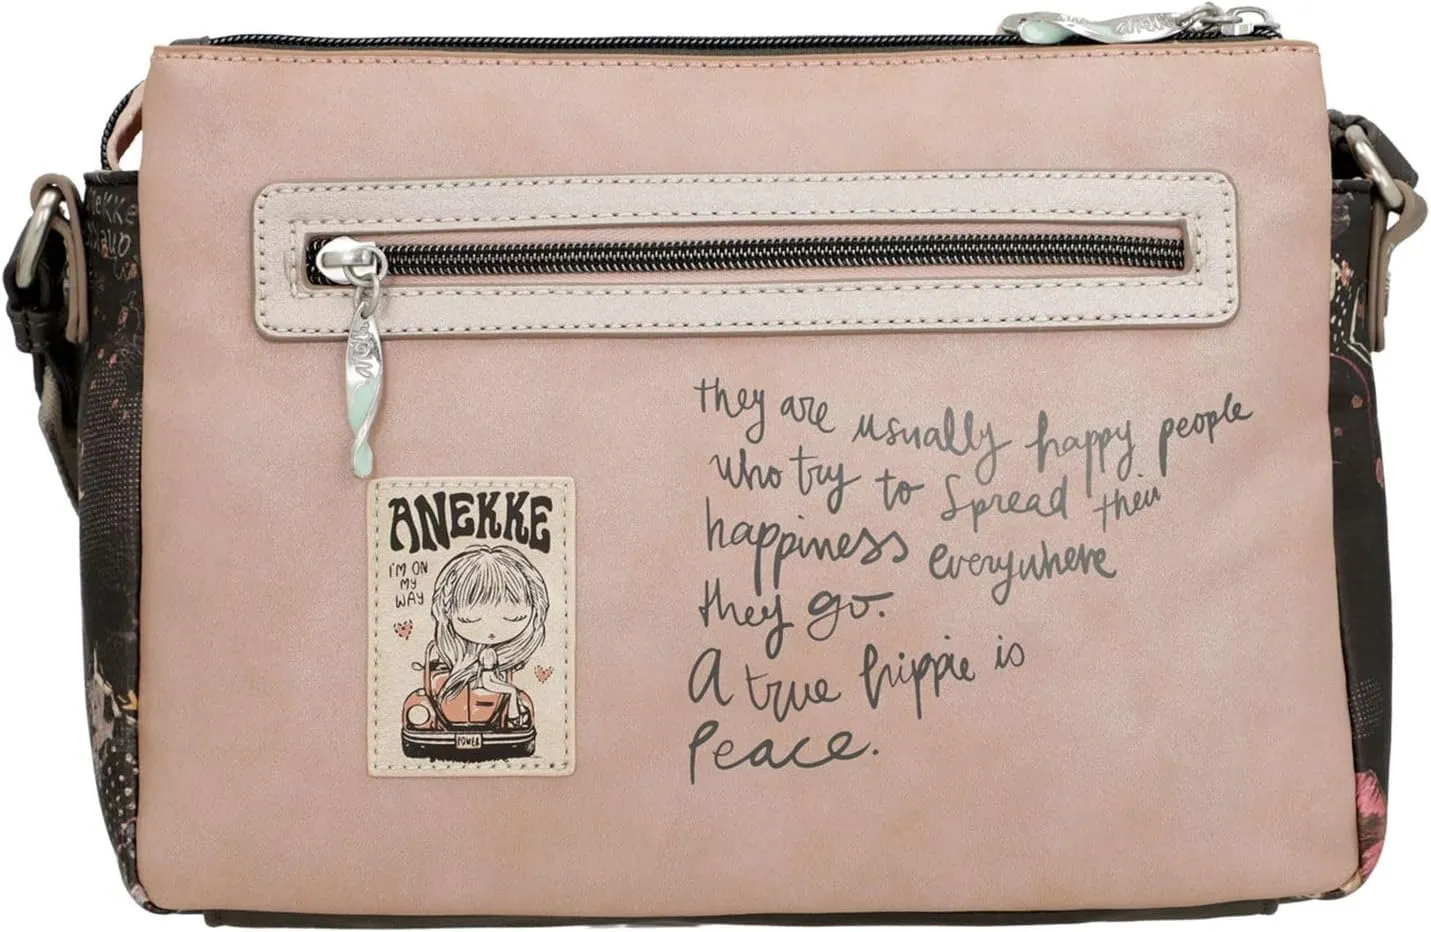 ANEKKE
I'M ON
MY
WAY
POWER
they are usually happy people
who try to spread their
happiness everywhere
they go.
A true hippie is
Peace.